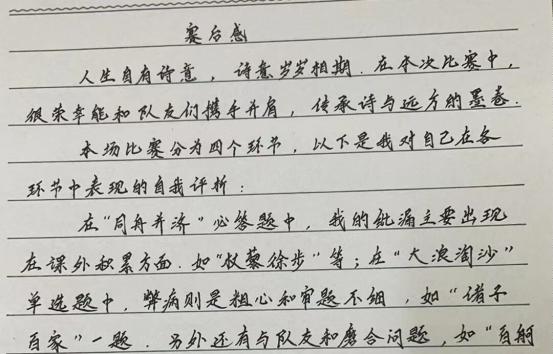 赛后感
人生自有诗意，诗意岁岁相期．在本次比赛中，
很荣幸能和队友们携手并肩，传承诗与远方的墨卷．
本场比赛分为四个环节，以下是我对自己在各
环节中表现的自我评析：
在“同舟并济”必答题中，我的纰漏主要出现
在课外积累方面．如“杖藜徐步”等；在“大浪淘沙”
单选题中，弊病则是粗心和审题不细，如“诸子
百家”一题．另外还有与队友和磨合问题，如“百舸